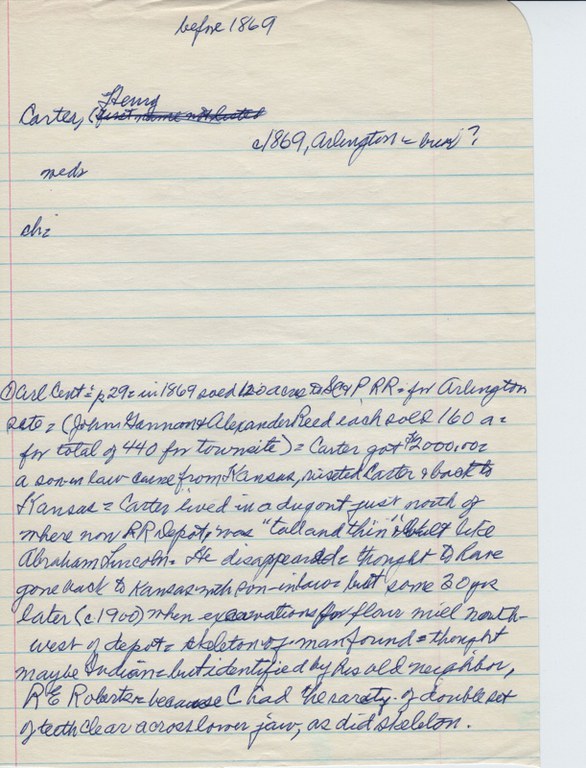 before 1869
Henry
Carter, (first name not listed
c1869, Arlington = bur ?
weds
ch=
① Arl Cent = p. 29 = in 1869 sold 120 acres to S C & P, RR = for Arlington
site = (John Gannon & Alexander Reed each sold 160 a =
for total of 440 for townsite) = Carter got $2000.00 =
a son-in-law came from Kansas, visited Carter & back to
Kansas = Carter lived in a dugout just north of
where now RR Depot, was "tall and thin" & built like
Abraham Lincoln. He disappeared = thought to have
gone back to Kansas with son-in-law = but some 30 yrs
later (c1900) when excavations for flour mill north-
west of depot = skeleton of man found = thought
maybe Indian = but identified by his old neighbor,
R E Roberts = because C had the rarety of double set
of teeth clear across lower jaw, as did skeleton.